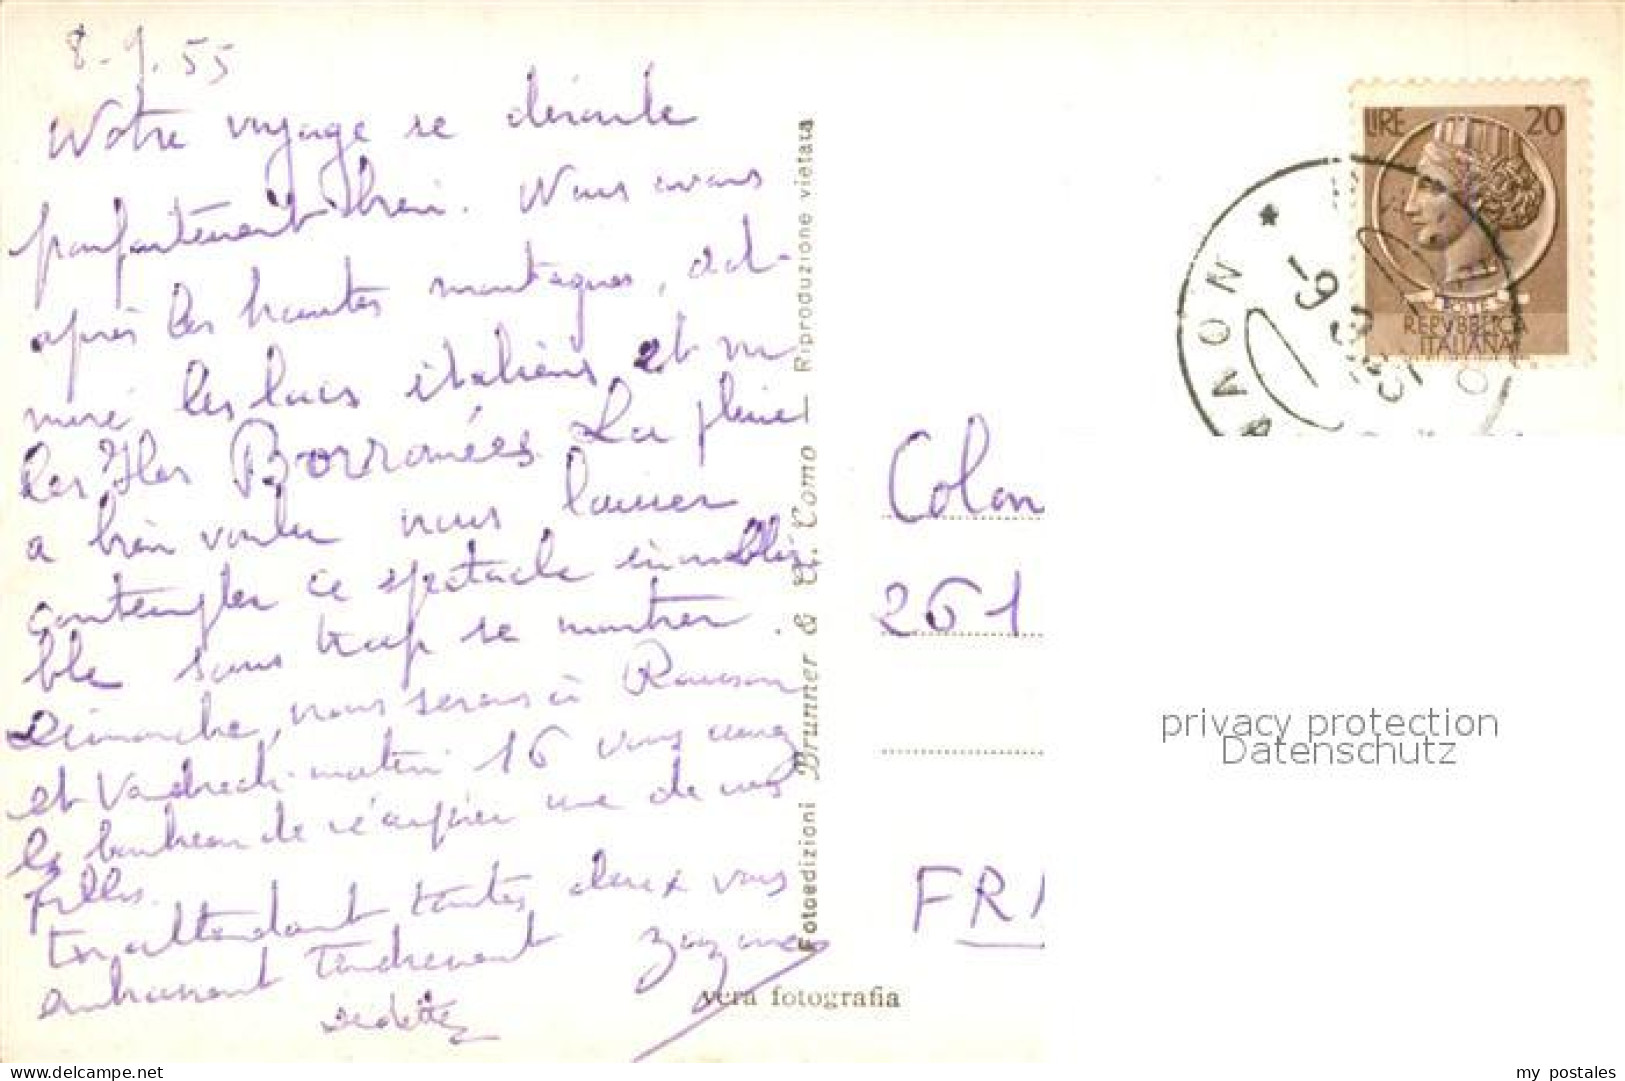 8-9.55
Notre voyage se déroule
parfaitement bien. Nous avons
après les hautes montagnes, ad-
miré les lacs italiens et
les Iles Borromées La pluie
a bien voulu nous laisser
contempler ce spectacle inoublia
ble sans trop se montrer.
Dimanche, nous serons à
et Vendredi matin 16 vous aurez
le bonheur de une de vos
filles.
En attendant toutes deux vous
embrassent tendrement
Fotoedizioni Brunner & C. Como — Riproduzione vietata
vera fotografia
LIRE 20
POSTE
REPVBBLICA
ITALIANA
Colon
261
FR
privacy protection
Datenschutz
www.delcampe.net
my_postales